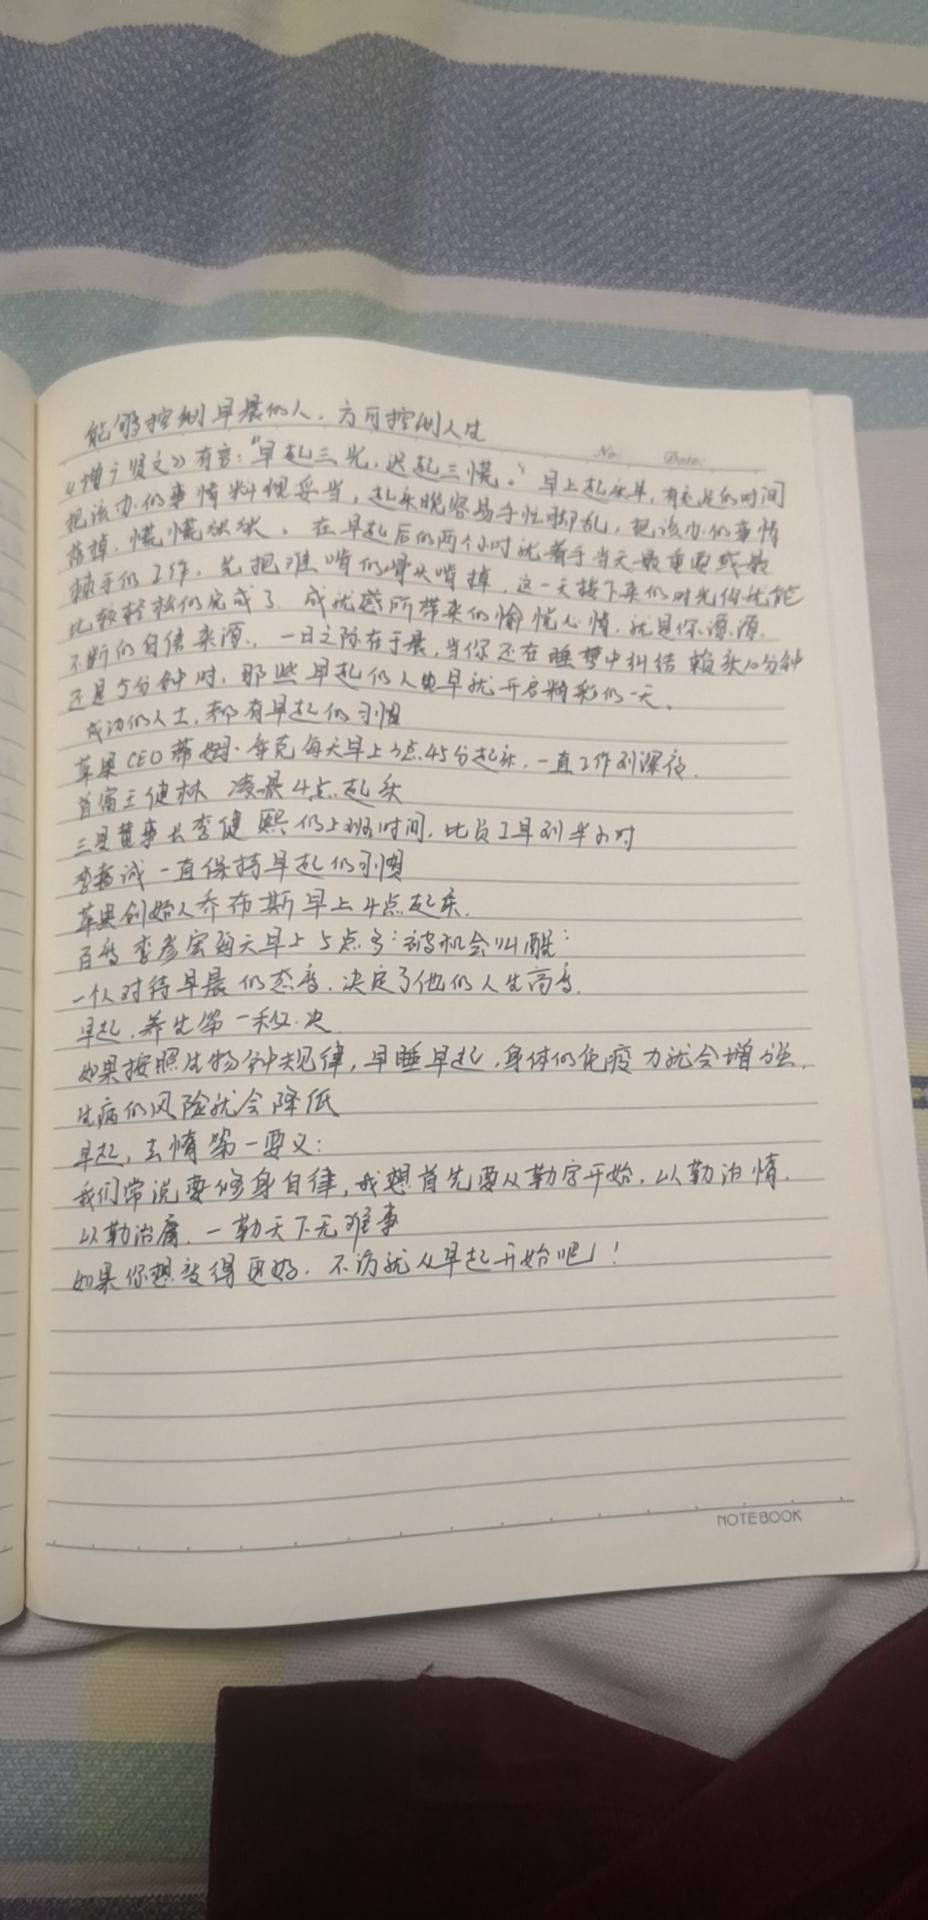 能够控制早晨的人，方可控制人生
No. Date.
《增广贤文》有言：“早起三光，迟起三慌。”早上起床早，有充足的时间
把该办的事情料理妥当，起床晚容易手忙脚乱，把该办的事情
落掉，慌慌张张。在早起后的两个小时就着手当天最重要或最
棘手的工作，先把难啃的骨头啃掉，这一天接下来的时光你就能
比较轻松的完成了，成就感所带来的愉悦心情，就是你源源
不断的自信来源，一日之际在于晨，当你还在睡梦中纠结赖床10分钟
还是5分钟时，那些早起的人早就开启精彩的一天。
成功的人士，都有早起的习惯
苹果CEO蒂姆·库克每天早上3点45分起床，一直工作到深夜
首富王健林 凌晨4点起床
三星董事长李健熙的上班时间，比员工早到半小时
李嘉诚一直保持早起的习惯
苹果创始人乔布斯早上4点起床
百度李彦宏每天早上5点多：被机会叫醒：
一个人对待早晨的态度，决定了他的人生高度
早起，养生第一秘诀
如果按照生物钟规律，早睡早起，身体的免疫力就会增强，
生病的风险就会降低
早起，去惰第一要义：
我们常说要修身自律，我想首先要从勤字开始，以勤治惰，
以勤治庸，一勤天下无难事
如果你想变得更好，不访就从早起开始吧！
NOTEBOOK